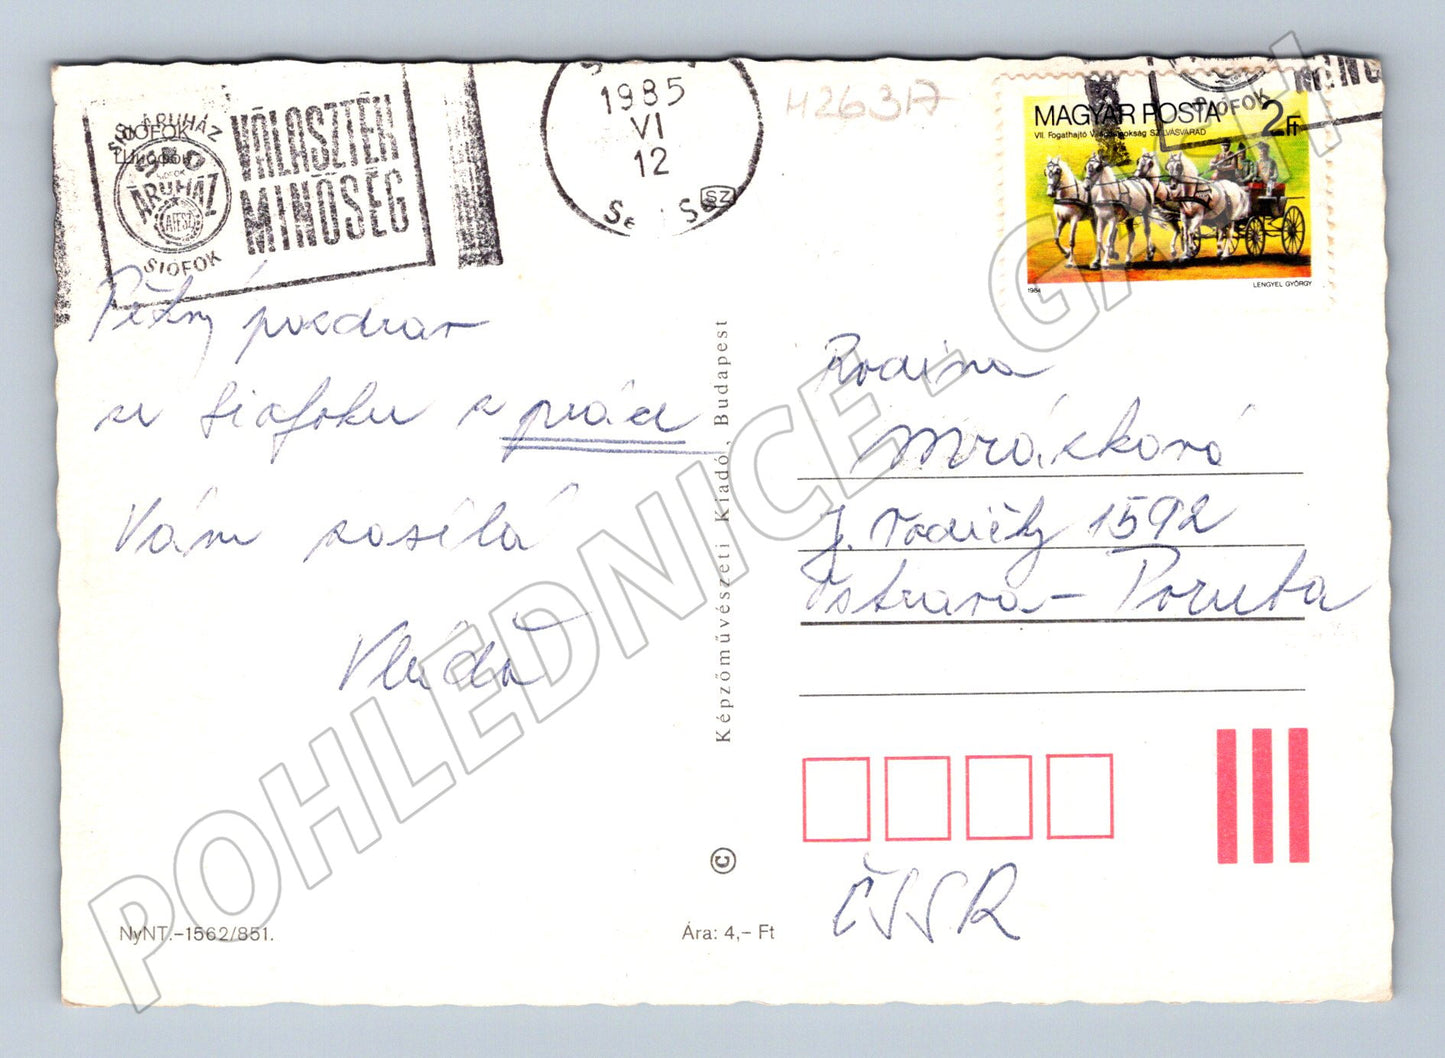 SIÓFOK
ÁRUHÁZ
SIÓ
ÁRUHÁZ
ÁFÉSZ
SIÓFOK
VÁLASZTÉK
MINŐSÉG
1985
VI
12
SZ
H26317
MAGYAR POSTA
2Ft
VII. Fogathajtó Világbajnokság SZILVÁSVÁRAD
1984
LENGYEL GYÖRGY
SIÓFOK
Pěkný pozdrav
ze Siofoku z práce
Vám zasílá
Vláďa
Képzőművészeti Kiadó, Budapest
Rodina
Mrázková
J. Vodičky 1592
Ostrava - Poruba
ČSSR
NyNT.–1562/851.
Ára: 4,– Ft
©
POHLEDNICE - GASCH